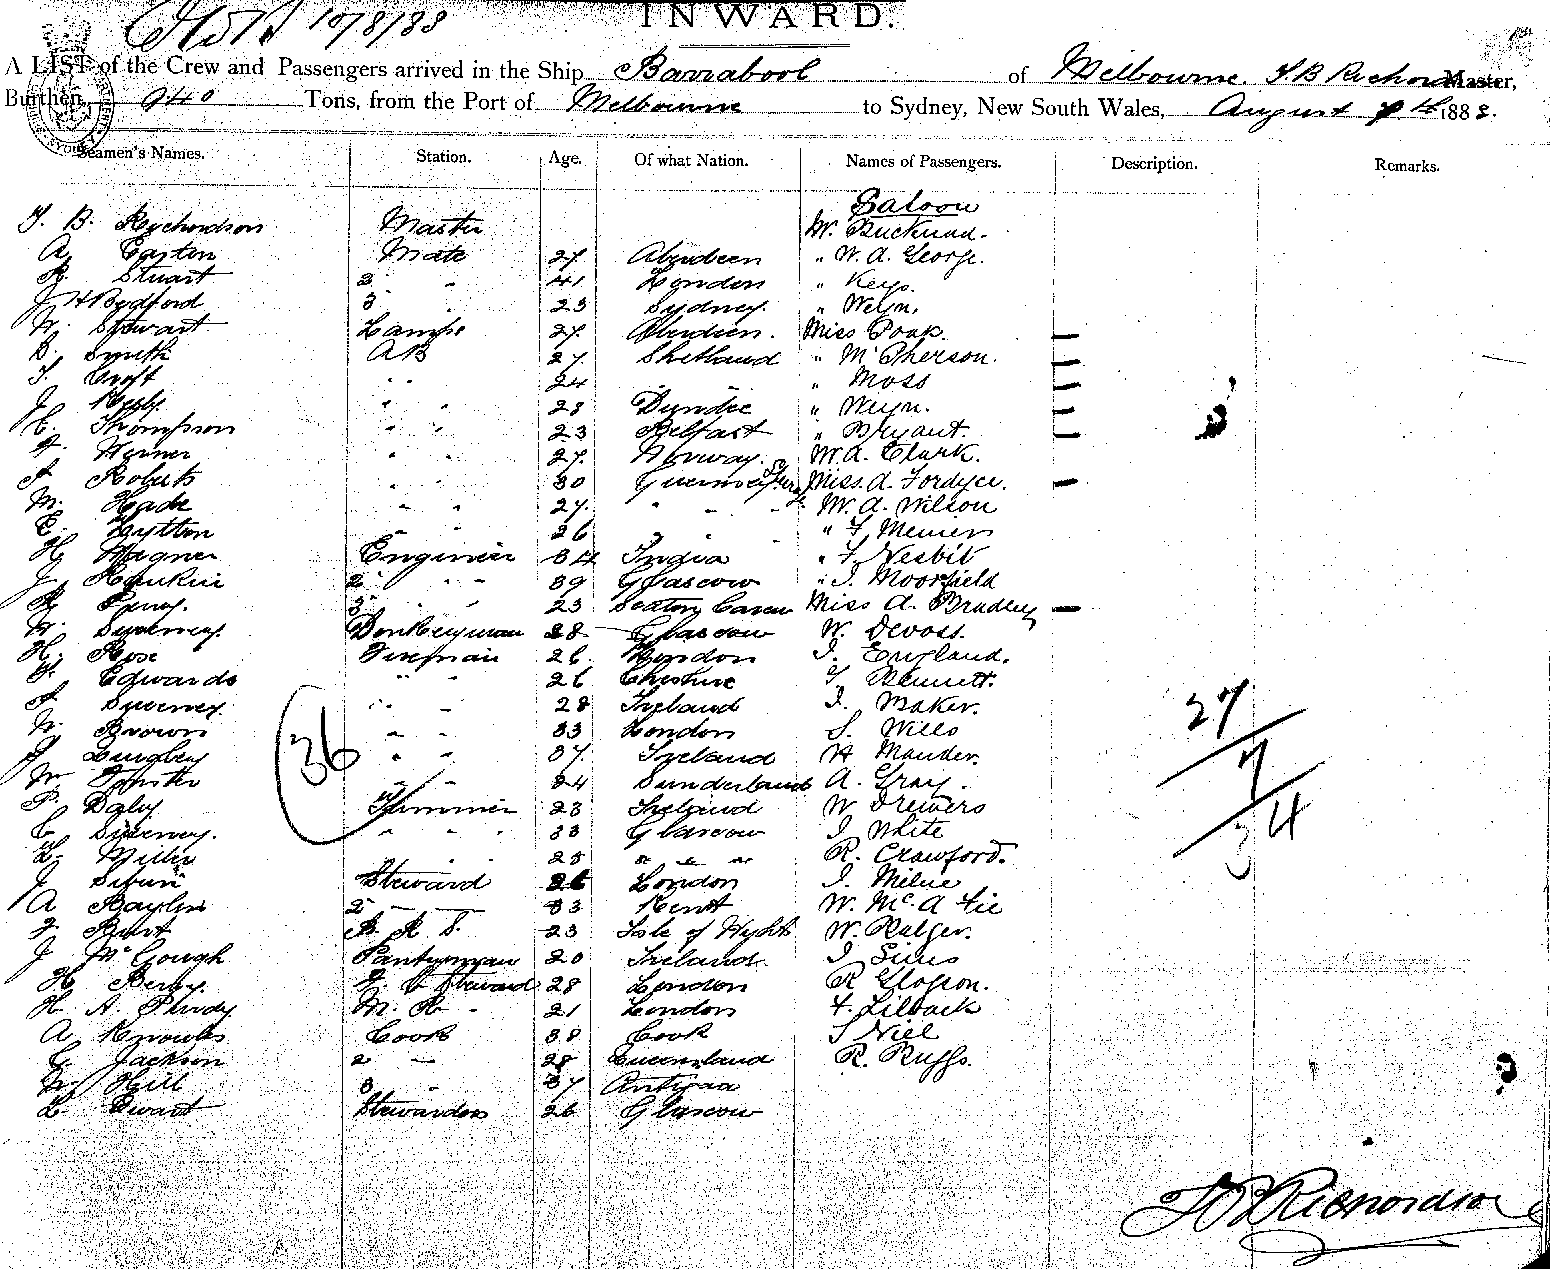 10/8/83
INWARD.
A LIST of the Crew and Passengers arrived in the Ship Barrabool of Melbourne. T. B. Richardson Master,
Burthen 940 Tons, from the Port of Melbourne to Sydney, New South Wales, August 9th 1883.
Seamen's Names. Station. Age. Of what Nation. Names of Passengers. Description. Remarks.
Saloon
T. B. Richardson Master W.
A. Easton Mate 27 Aberdeen " W. A. George.
R. Stuart 2 " 41 London " Keys.
J. H Bedford 3 " 23 Sydney. "
W. Stewart Lamps 27 Aberdeen. Miss Poak.
D. Smith AB 27 Shetland " McPherson.
T. Croft " " 24 " " " Moss
J. " " 28 Dundee "
C. Thompson " " 23 Belfast " Bryant.
Horner " 27 Norway. W. A. Clark.
Roberts " 30 Guernsey Miss. A. Fordyce.
M. " " 27 " " " W. A. Wilson
E. Lytton " " 26 " F.
H. Wagner Engineer 34 India " F. Nesbit
J. Rankin 2 " " 39 Glascow " J. Moorfield
R. 3 " " 23 Seaton Carew Miss A. Bradley
W. Sweeney. Donkeyman 28 Glascow W. Devoss.
H. Rose Fireman 26 London J. England.
Edwards " " 26 Cheshire T. Bennett.
Sweeney. " " 28 Ireland J. Maker.
W. Brown " " 33 London S. Wills
J. Langley " " 37 Ireland H Mander.
W. Forster " " 24 Sunderland A. Gray.
P. Daly Trimmer 23 Ireland W Drewers
C. Sweeney. " " " 33 Glascow J. White
L. Miller " " 25 " " " R. Crawford.
J. Steward 26 London J. Milne
A Baylis 2 " 33 Kent W. McA Fie
F. Burt B. R. S. 23 Isle of Wight W.
J McGough Pantryman 20 Ireland J Sims
H Berry. F. C Steward 28 London R
H A. Purdy M. R. " 21 London F.
A Knowles Cook 38 Cook J Niel
C. Jackson 2 " 28 Queensland R. Ruffs.
W. Hill 3 " 37 Antigua
L Ewart Stewardess 26 Glascow
36
27
7
34
T B Richardson